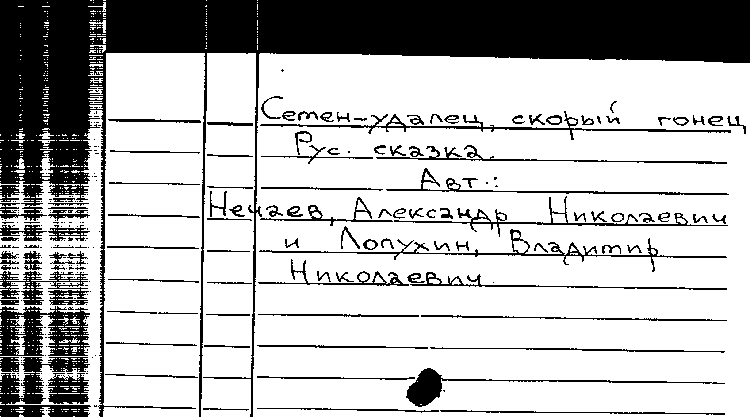 Семен-удалец, скорый гонец
Рус. сказка.
Авт.:
Нечаев, Александр Николаевич
и Лопухин, Владимир
Николаевич